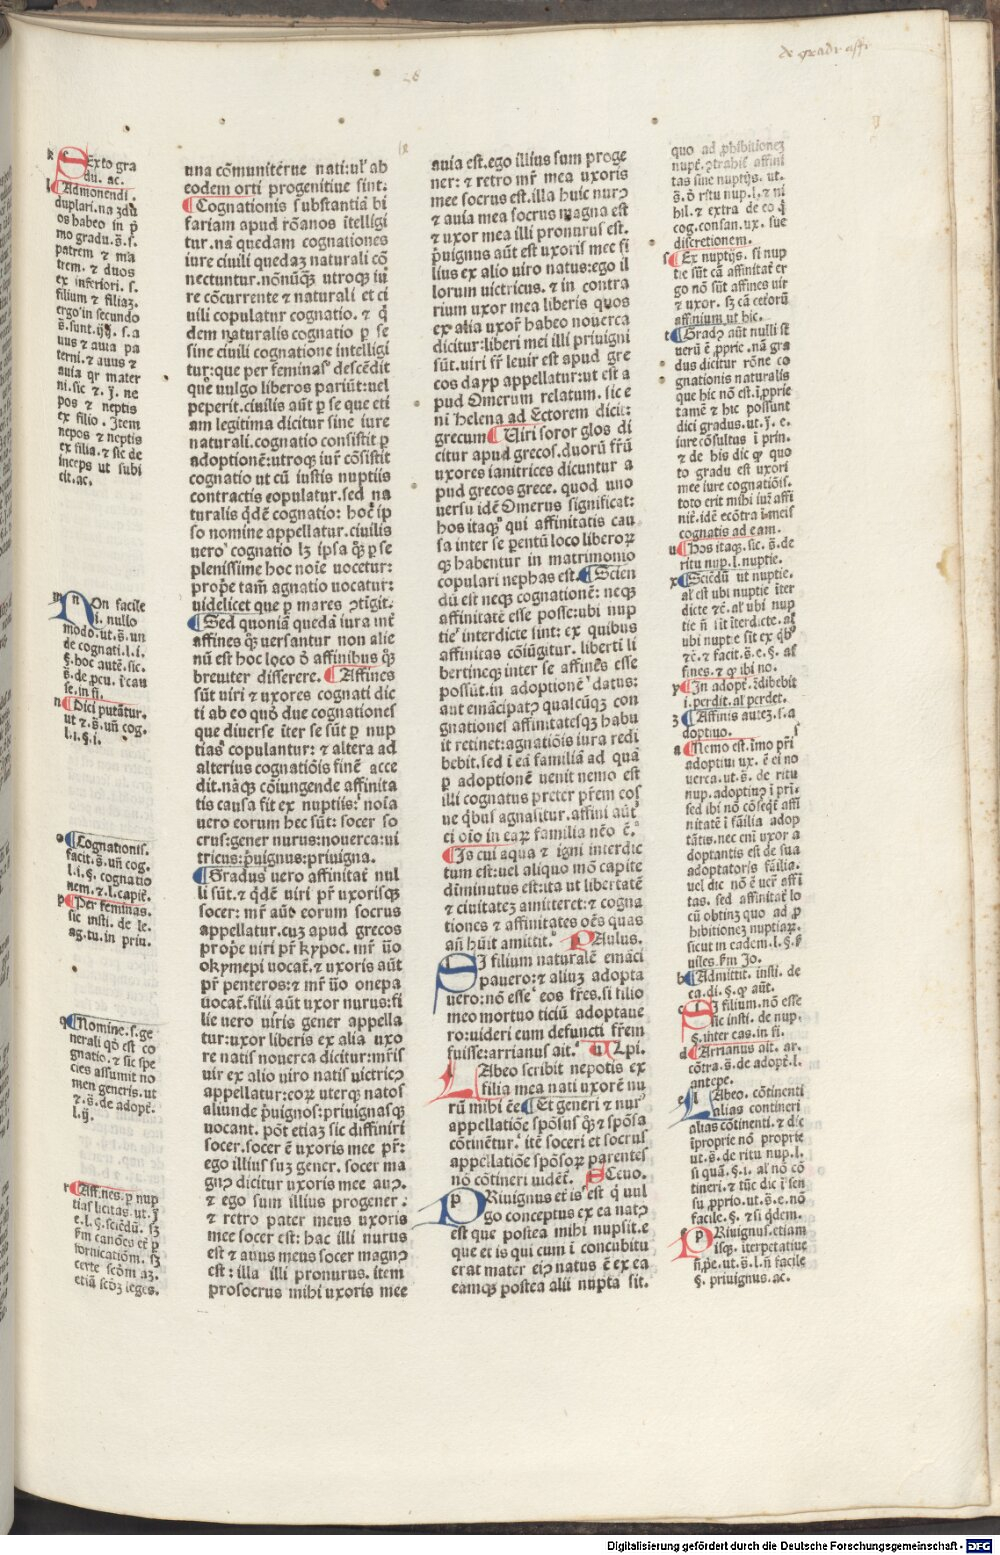 de gradi. affi.
Exto gra
du. ac.
Admonendi.
duplari. na ʒdu
os habeo in p̄
mo gradu. s̄. s.
patrem ⁊ ma
trem. ⁊ duos
ex inferiori. s.
filium ⁊ filiaʒ.
ergo in secundo
s̄. sunt. iiij. s. a
uus ⁊ auia pa
terni. ⁊ auus ⁊
auia qr mater
ni. sic ⁊. j. ne
pos ⁊ neptis
ex filio. Item
nepos ⁊ neptis
ex filia. ⁊ sic de
inceps ut subi
cit. ac.
On facile
i. nullo
modo. ut. s̄. un
de cognati. l. i.
§. hoc autē. sic.
s̄. de pcu. i cau
se. in fi.
Dici putātur.
ut ⁊. s̄. uñ cog.
l. i. §. i.
Cognationis.
facit. s̄. uñ cog.
l. i. §. cognatio
nem. ⁊. l. capit̄.
Per feminas.
sic insti. de le.
ag. tu. in priu.
Nomine. s. ge
nerali qð est co
gnatio. ⁊ sic spe
cies assumit no
men generis. ut
⁊. s̄. de adopt̄.
l. ij.
Affines. p nup
tias licitas. ut. j
e. l. §. sciēdū. sʒ
fm canōes et̄ p
fornicatiōm. sʒ
certe scðm aʒ.
etiā scðʒ leges.
una cōmuniterue nati: ul' ab
eodem orti progenitiue sint.
Cognationis substantiā bi
fariam apud rōanos ītelligi
tur. nā quedam cognationes
iure ciuili quedaʒ naturali cō
nectuntur. nōnūq̄ʒ utroqʒ iu
re cōcurrente ⁊ naturali et ci
uili copulatur cognatio. ⁊ q̇
dem naturalis cognatio p se
sine ciuili cognatione intelligi
tur: que per feminas descēdit
que uulgo liberos pariūt: uel
peperit. ciuilis aūt p se que eti
am legitima dicitur sine iure
naturali. cognatio consistit p
adoptionē: utroqʒ iur̄ cōsistit
cognatio ut cū iustis nuptiis
contractis copulatur. sed na
turalis q̇dē cognatio: hoc īp
so nomine appellatur. ciuilis
uero cognatio lʒ ipsa q̄ʒ p se
plenissime hoc noīe uocetur:
prop̄e tam̄ agnatio uocatur:
uidelicet que p mares ɔtīgit.
Sed quoniā quedā iura int̄
affines q̄ʒ uersantur non alie
nū est hoc loco ō affinibus q̄ʒ
breuiter disserere. Affines
sūt uiri ⁊ uxores cognati dic
ti ab eo quod due cognationes
que diuerse iter se sūt p nup
tias copulantur: ⁊ altera ad
alterius cognatiōis finē acce
dit. nāqʒ cōiungende affinita
tis causa fit ex nuptiis: noīa
uero eorum hec sūt: socer so
crus: gener nurus: nouerca: ui
tricus: p̄uignus: priuigna.
Gradus uero affinitat̄ nul
li sūt. ⁊ q̇dē uiri pr̄ uxorisqʒ
socer: mr̄ autē eorum socrus
appellatur. cuʒ apud grecos
prop̄e uiri pr̄ kypoc. mr̄ ūo
okymepi uocat̄. ⁊ uxoris aūt
pr̄ penteros: ⁊ mr̄ ūo onepa
uocat̄. filii aūt uxor nurus: fi
lie uero uiris gener appella
tur: uxor liberis ex alia uxo
re natis nouerca dicitur: mr̄is
uir ex alio uiro natis uictric⁹
appellatur: eoꝝ uterqʒ natos
aliunde p̄uignos: priuignasqʒ
uocant. pōt etiaʒ sic diffiniri
socer. socer ē uxoris mee pr̄:
ego illius suʒ gener. socer ma
gn⁹ dicitur uxoris mee au⁹.
⁊ ego sum illius progener:
⁊ retro pater meus uxoris
mee socer est: hac illi nurus
est ⁊ auus meus socer magn⁹
est: illa illi pronurus. item
prosocrus mihi uxoris mee
auia est. ego illius sum proge
ner: ⁊ retro mr̄ mea uxoris
mee socrus est. illa huic nur⁹
⁊ auia mea socrus magna est
⁊ uxor mea illi pronurus est.
p̄uignus aūt est uxoris mee fi
lius ex alio uiro natus: ego il
lorum uictricus. ⁊ in contra
rium uxor mea liberis quos
ex alia uxor̄ habeo nouerca
dicitur: liberi mei illi priuigni
sūt. uiri fr̄ leuir est apud gre
cos dayp appellatur: ut est a
pud Omerum relatum. sic e
ni helena ad Ectorem dicit:
grecum Uiri soror glos di
citur apud grecos. duorū fr̄ū
uxores ianitrices dicuntur a
pud grecos grece. quod uno
uersu idē Omerus significat:
hos itaqʒ qui affinitatis cau
sa inter se pentū loco liberoꝝ
qʒ habentur in matrimonio
copulari nephas est. Scien
dū est neqʒ cognationē: neqʒ
affinitatē esse posse: ubi nup
tie interdicte sint: ex quibus
affinitas cōiūgitur. liberti li
bertineqʒ inter se affines esse
possūt. in adoptionē datus:
aut emācipat⁹ qualcūqʒ con
gnationes affinitatesqʒ habu
it retinet: agnatiōis iura redi
bebit. sed ī eā familiā ad quā
p adoptionē uenit nemo est
illi cognatus preter p̄rem eos
ue q̇bus agnascitur. affini aūt
ci oīo in eaꝝ familia nēo ē.
Is cui aqua ⁊ igni interdic
tum est: uel aliquo mō capite
diminutus est: ita ut libertatē
⁊ ciuitateʒ amitteret: ⁊ cogna
tiones ⁊ affinitates oēs quas
añ hūit amittit. PAulus.
SI filium naturalē emāci
pauero: ⁊ aliuʒ adopta
uero: nō esse eos fr̄es. si filio
meo mortuo ticiū adoptaue
ro: uideri eum defuncti fr̄em
fuisse: arrianus ait. Ulpi.
LAbeo scribit nepotis ex
filia mea nati uxorē nu
rū mihi ēe Et generi ⁊ nur⁹
appellatiōe spōsus q̄ʒ ⁊ spōsa
cōtinētur. itē soceri et socrus
appellatiōe spōsoꝝ parentes
nō cōtineri uidēt̄. Sceuo.
PRiuignus et is est q̇ uul
go conceptus ex ea nat⁹
est que postea mihi nupsit. e
que et is qui cum i concubitu
erat mater ei⁹ natus ē ex ea
eamqʒ postea alii nupta sit.
quo ad ꝓhibitioneʒ
nupt̄. ɔtrahit̄ affini
tas sine nuptijs. ut.
s̄. ō ritu nup. l. ⁊ ni
hil. ⁊ extra de eo q̇
cog. consan. ux. sue
discretionem.
Ex nuptijs. si nup
tie sūt cā affinitat̄ er
go nō sūt affines uir
⁊ uxor. sʒ cā ceteroꝝ
affinium ut hic.
Grad⁹ aūt nulli st̄
uerū ē ꝓprie. nā gra
dus dicitur rōne co
gnationis naturalis
que hic nō est. iꝓprie
tamē ⁊ hic possunt
dici gradus. ut. j. e.
iure cōsultus i prin.
⁊ de his dic ꝙ quo
to gradu est uxori
mee iure cognatiōis.
toto erit mihi iur̄ affi
nit̄. idē ecōtra ī meis
cognatis ad eam.
Hos itaqʒ. sic. s̄. de
ritu nup. l. nuptie.
Sciēdū ut nuptie.
al' est ubi nuptie īter
dicte ⁊c̄. al' ubi nup
tie ñ sīt īterdicte. al'
ubi nuptie sit ex q̇bꝰ
⁊c̄. ⁊ facit. s̄. e. §. af
fines. ⁊ ꝙ ibi no.
In adopt̄. r̄dibebit
i. perdit. al' perdet.
Affinis auteʒ. s. a
doptiuo.
Nemo est. īmo pri
adoptiui ux. ē ei no
uerca. ut. s̄. de ritu
nup. adoptiu⁹ i pri.
sed ibi nō cōseq̄t̄ affi
nitatē ī fāilia adop
tātis. nec enī uxor a
doptantis est de sua
adoptatoris fāilia.
uel dic nō ē uer̄ affī
tas. sed affinitat̄ lo
cū obtinʒ quo ad ꝓ
hibitioneʒ nuptiaꝝ.
sicut in eadem. l. §. s̄
uiles. fm Jo.
Admittit. insti. de
ca. di. §. ꝙ aūt.
SI filium. nō esse
sic insti. de nup.
§. inter cas. in fi.
Arrianus ait. ar.
cōtra. s̄. de adopt̄. l.
antepe.
LAbeo. cōtinenti
alias contineri
alias cōtinenti. ⁊ dic
īproprie nō proprie
ut. s̄. de ritu nup. l.
si quā. §. i. al' nō cō
tineri. ⁊ tūc dic ī sen
su ꝓprio. ut. s̄. e. nō
facile. §. ⁊ si q̇dem.
PRiuignus. etiam
isqʒ. iterpetatiue
ñ ꝓe. ut. s̄. l. ñ facile
§. priuignus. ac.
Digitalisierung gefördert durch die Deutsche Forschungsgemeinschaft - DFG